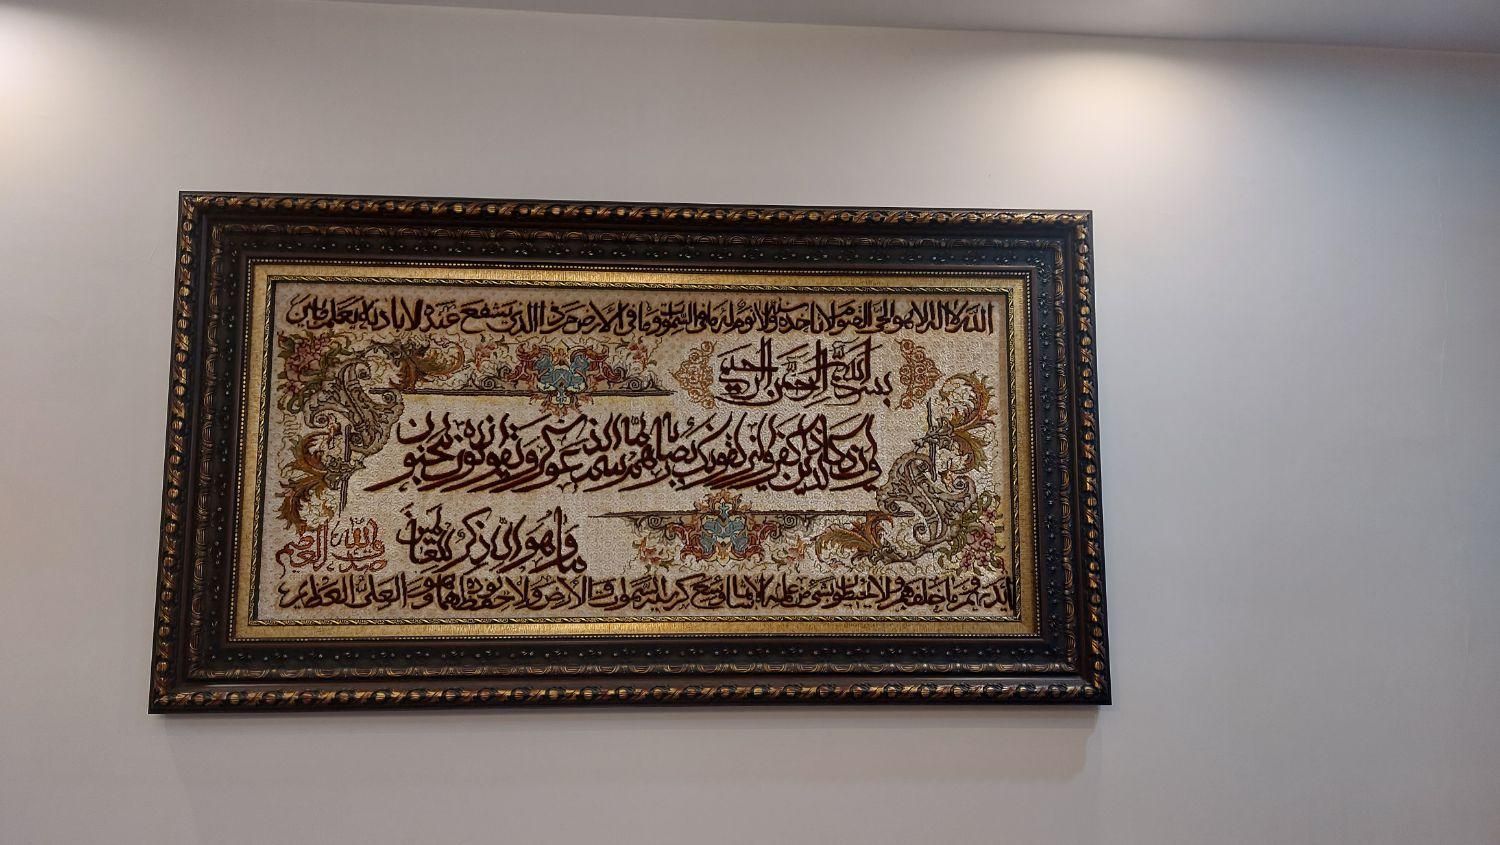 الله لا اله الا هو الحي القيوم لا تاخذه سنة ولا نوم له ما في السموات وما في الارض من ذا الذي يشفع عنده الا باذنه يعلم ما بين
بسم الله الرحمن الرحيم
وان يكاد الذين كفروا ليزلقونك بابصارهم لما سمعوا الذكر ويقولون انه لمجنون
وما هو الا ذكر للعالمين
صدق الله العظيم
ايديهم وما خلفهم ولا يحيطون بشيء من علمه الا بما شاء وسع كرسيه السموات والارض ولا يؤده حفظهما وهو العلي العظيم